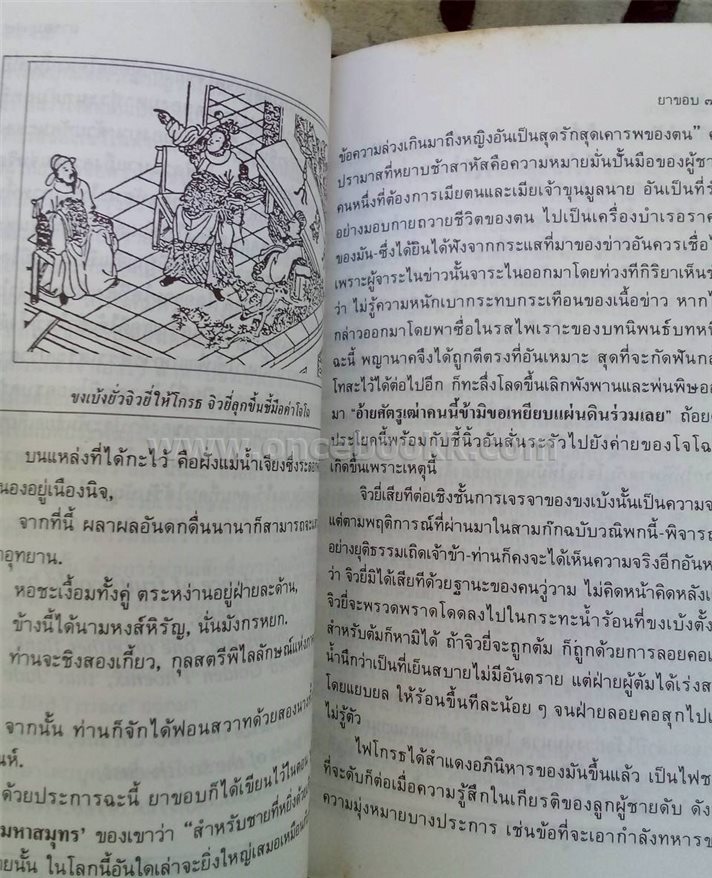 ขงเบ้งยั่วจิวยี่ให้โกรธ จิวยี่ลุกขึ้นชี้มือด่าโจโฉ
บนแหล่งที่ได้กะไว้ คือฝั่งแม่น้ำเจียงซึ่งระ
นองอยู่เนืองนิจ,
จากที่นี้ ผลาผลอันดกดื่นนานาก็สามารถจะ
อุทยาน.
หอชะเงื้อมทั้งคู่ ตระหง่านอยู่ฝ่ายละด้าน,
ข้างนี้ได้นามหงส์หิรัญ, นั่นมังกรหยก.
ท่านจะชิงสองเกี้ยว, กุลสตรีพิไลลักษณ์แห่ง
จากนั้น ท่านก็จักได้ฟอนสวาทด้วยสอง
ห์.
ด้วยประการฉะนี้ ยาขอบก็ได้เขียนไว้ใน
มหาสมุทร' ของเขาว่า “สำหรับชายที่หยิ่งด้วย
ยนั้น ในโลกนี้อันใดเล่าจะยิ่งใหญ่เสมอเหมือน
ยาขอบ ๗
ข้อความล่วงเกินมาถึงหญิงอันเป็นสุดรักสุดเคารพของตน”
ปรามาสที่หยาบช้าสาหัสคือความหมายมั่นปั้นมือของผู้ชา
คนหนึ่งที่ต้องการเมียตนและเมียเจ้าขุนมูลนาย อันเป็นที่รั
อย่างมอบกายถวายชีวิตของตน ไปเป็นเครื่องบำเรอราค
ของมัน-ซึ่งได้ยินได้ฟังจากกระแสที่มาของข่าวอันควรเชื่อไ
เพราะผู้จาระไนข่าวนั้นจาระไนออกมาโดยท่วงทีกิริยาเห็นช
ว่า ไม่รู้ความหนักเบากระทบกระเทือนของเนื้อข่าว หากไ
กล่าวออกมาโดยพาซื่อในรสไพเราะของบทนิพนธ์บทหนึ
ฉะนี้ พญานาคจึงได้ถูกตีตรงที่อันเหมาะ สุดที่จะกัดฟันก
โทสะไว้ได้ต่อไปอีก ก็ทะลึ่งโลดขึ้นเลิกพังพานและพ่นพิษออ
มา “อ้ายศัตรูเฒ่าคนนี้ข้ามิขอเหยียบแผ่นดินร่วมเลย” ถ้อยค
ประโยคนี้พร้อมกับชี้นิ้วอันสั่นระรัวไปยังค่ายของโจโฉ
เกิดขึ้นเพราะเหตุนี้
จิวยี่เสียทีต่อเชิงชั้นการเจรจาของขงเบ้งนั้นเป็นความจ
แต่ตามพฤติการณ์ที่ผ่านมาในสามก๊กฉบับวณิพกนี้-พิจารณ
อย่างยุติธรรมเถิดเจ้าข้า-ท่านก็คงจะได้เห็นความจริงอีกอันห
ว่า จิวยี่มิได้เสียทีด้วยฐานะของคนวู่วาม ไม่คิดหน้าคิดหลังเ
จิวยี่จะพรวดพราดโดดลงไปในกระทะน้ำร้อนที่ขงเบ้งตั้ง
สำหรับต้มก็หามิได้ ถ้าจิวยี่จะถูกต้ม ก็ถูกด้วยการลอยคอ
น้ำนึกว่าเป็นที่เย็นสบายไม่มีอันตราย แต่ฝ่ายผู้ต้มได้เร่ง
โดยแยบยล ให้ร้อนขึ้นทีละน้อย ๆ จนฝ่ายลอยคอสุกไป
ไม่รู้ตัว
ไฟโกรธได้สำแดงอภินิหารของมันขึ้นแล้ว เป็นไฟช
ที่จะดับก็ต่อเมื่อความรู้สึกในเกียรติของลูกผู้ชายดับ ดัง
ความมุ่งหมายบางประการ เช่นข้อที่จะเอากำลังทหารข
www.oncebookk.com